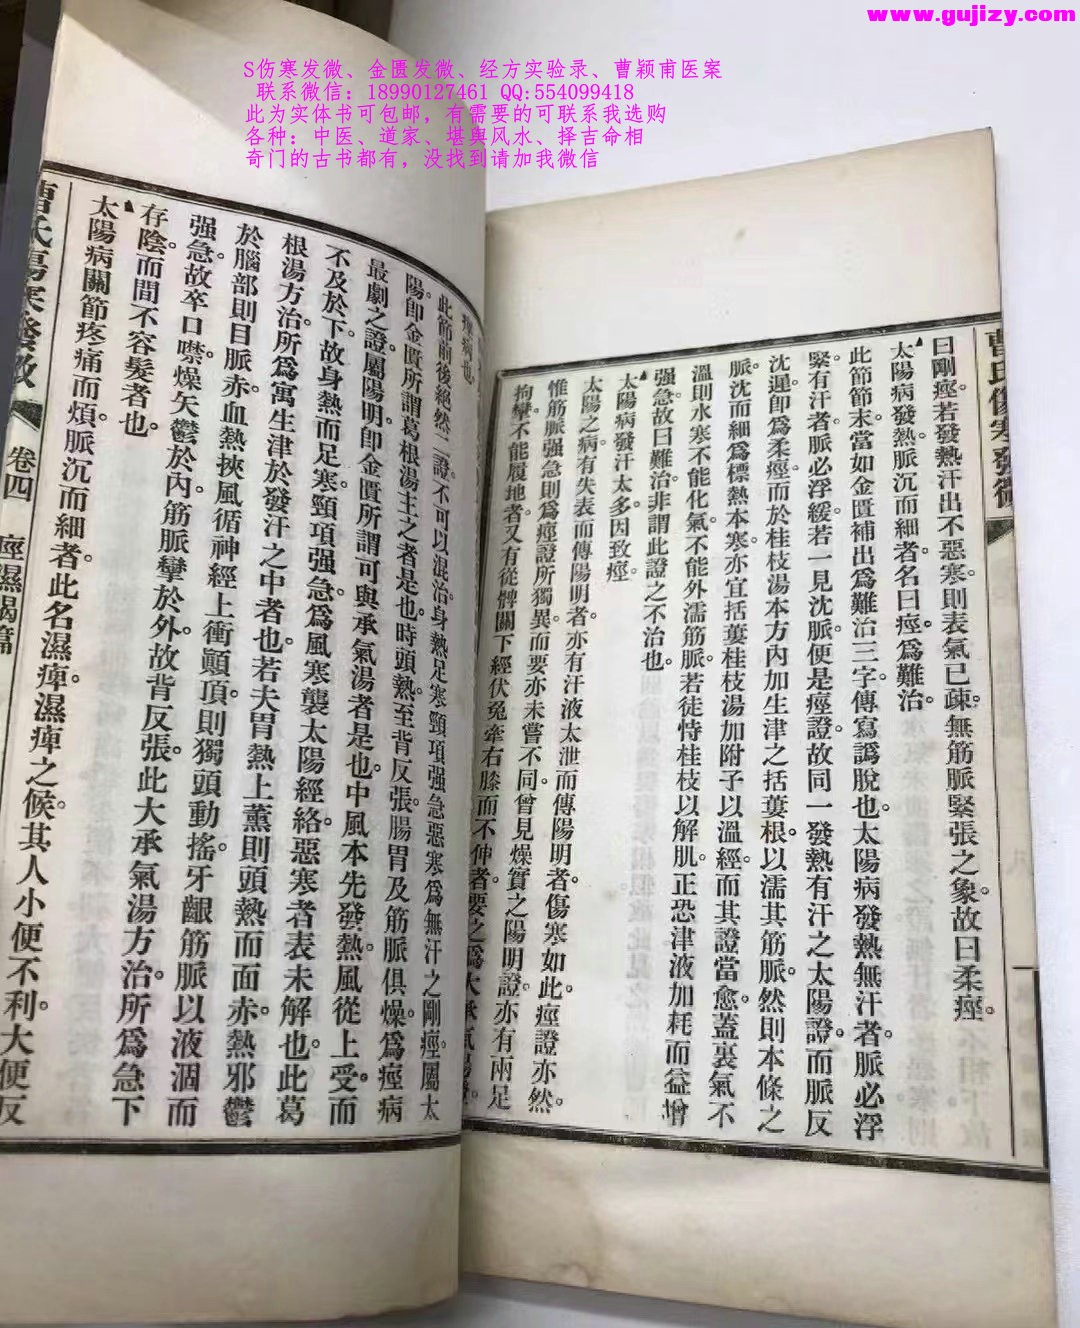 www.gujizy.com
S伤寒发微、金匮发微、经方实验录、曹颖甫医案
联系微信：18990127461 QQ:554099418
此为实体书可包邮，有需要的可联系我选购
各种：中医、道家、堪舆风水、择吉命相
奇门的古书都有，没找到请加我微信
曹氏傷寒發微
曰剛痙若發熱汗出不惡寒則表氣已疎。無筋脈緊張之象。故曰柔痙。
太陽病發熱。脈沉而細者。名曰痙。為難治。
此節節末。當如金匱補出為難治三字。傳寫譌脫也。太陽病發熱無汗者。脈必浮
緊。有汗者。脈必浮緩。若一見沈脈。便是痙證。故同一發熱有汗之太陽證。而脈反
沈遲。即為柔痙。而於桂枝湯本方內。加生津之括蔞根。以濡其筋脈。然則本條之
脈沈而細。為標熱本寒。亦宜括蔞桂枝湯加附子以溫經。而其證當愈。蓋裏氣不
溫。則水寒不能化氣。不能外濡筋脈。若徒恃桂枝以解肌。正恐津液加耗。而益增
强急。故曰難治。非謂此證之不治也。
太陽病。發汗太多。因致痙。
太陽之病。有失表而傳陽明者。亦有汗液太泄而傳陽明者。傷寒如此。痙證亦然。
惟筋脈强急。則為痙證所獨異。而要亦未嘗不同。曾見燥實之陽明證。亦有兩足
拘攣不能履地者。又有從髀關下經伏兔牽右膝而不伸者。要之為大承氣湯證。
痙病也。
此節前後絕然二證。不可以混治。身熱足寒頸項强急惡寒。為無汗之剛痙。屬太
陽。即金匱所謂葛根湯主之者是也。時頭熱至背反張。腸胃及筋脈俱燥。為痙病
最劇之證。屬陽明。即金匱所謂可與承氣湯者是也。中風本先發熱。風從上受而
不及於下。故身熱而足寒。頸項强急。為風寒襲太陽經絡。惡寒者。表未解也。此葛
根湯方治。所為寓生津於發汗之中者也。若夫胃熱上薰。則頭熱而面赤。熱邪鬱
於腦部。則目脈赤。血熱挾風循神經上衝顚頂。則獨頭動搖。牙齦筋脈以液涸而
强急。故卒口噤。燥矢鬱於內。筋脈攣於外。故背反張。此大承氣湯方治。所為急下
存陰而間不容髮者也。
太陽病。關節疼痛而煩。脈沉而細者。此名濕痺。濕痺之候。其人小便不利。大便反
曹氏傷寒發微 卷四 痙濕暍篇